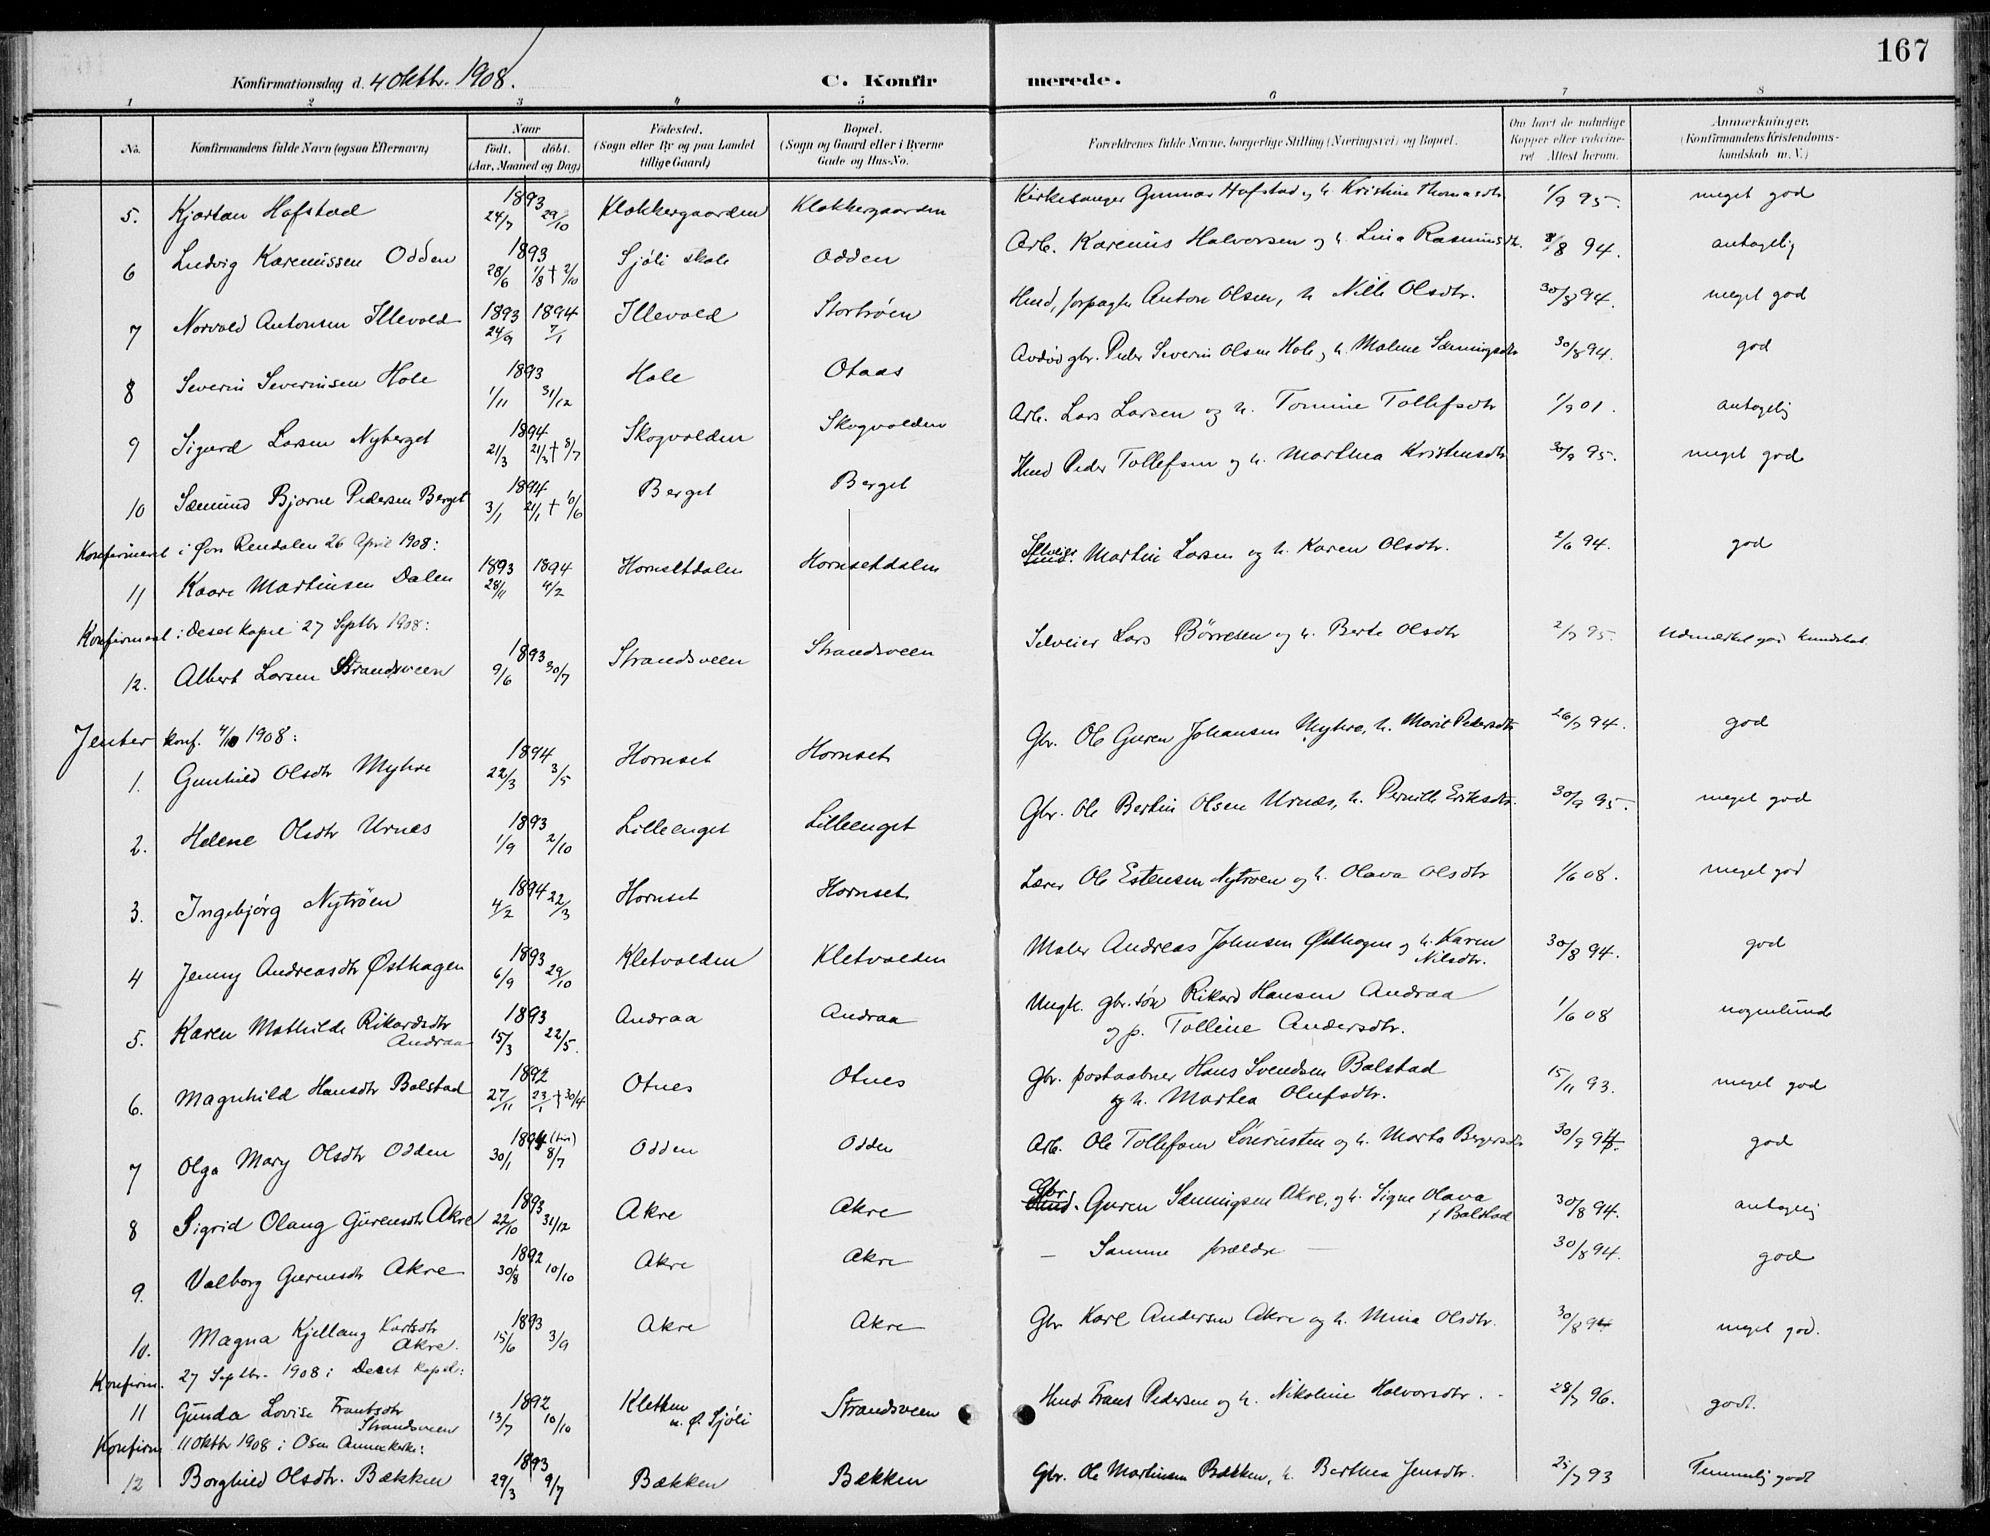 167
Konfirmationsdag d. 4 Oktbr. 1908.
C. Konfirmerede.
1 2 3 4 5 6 7 8
No. Konfirmandens fulde Navn (ogsaa Efternavn) Naar født. døbt. (Aar, Maaned og Dag) Fødested. (Sogn eller By og paa Landet tillige Gaard) Bopæl. (Sogn og Gaard eller i Byerne Gade og Hus-No. Forældrenes fulde Navne, borgerlige Stilling (Næringsvei) og Bopæl. Om havt de naturlige Kopper eller vaccineret Attest herom. Anmærkninger. (Konfirmandens Kristendomskundskab m. V.)
5. Kjartan Hafstad 1893 24/7 29/10 Klokkergaarden Klokkergaarden Kirkesanger Gunnar Hafstad og h. Kristine Thomasdtr 1/9 95. meget god
6 Ludvig Karenussen Odden 1893 28/6 1/8 + 2/10 Sjöli skole Odden Arb. Karenus Halvorsen og h. Lina Rasmusdtr. 8/8 94. antagelig
7 Norvald Antonsen Illevold 1893 24/9 1894 7/1 Illevold Stortröen Hmd, forpagter Anton Olsen, h Nille Olsdtr. 30/8 94. meget god
8 Severin Severinsen Hole 1893 1/11 31/12 Hole Otaas Avdød gbr. Peder Severin Olsen Hole og h. Malene Sæmingsdtr 30/8 94. god
9 Sigurd Larsen Nyberget 1894 21/3 21/3 + 8/7 Skogvolden Skogvolden Arb. Lars Larsen og h. Tomine Tollefsdtr 1/9 01. antagelig
10 Sæmund Bjarne Pedersen Berget 1894 3/1 21/1 + 10/6 Berget Berget Hmd Peder Tollefsen og h. Marthea Kristensdtr 30/9 95. meget god
Konfirmeret i Øvre Rendalen 26 April 1908:
11 Kaare Martinsen Dalen 1893 28/11 1894 4/2 Hornsetdalen Hornsetdalen Selveier Martin Larsen og h. Karen Olsdtr. 2/6 94. god
Konfirmert i Deset kapel 27 Septbr 1908:
12. Albert Larsen Strandsveen 1893 9/6 30/7 Strandsveen Strandsveen Selveier Lars Børresen og h. Berte Olsdtr 2/7 95. Udmerket god kundskab.
Jenter konf. 4/10 1908:
1. Gunhild Olsdtr Myhre 1894 22/3 3/5 Hornset Hornset Gbr. Ole Guren Johansen Myhre, h. Marit Pedersdtr 26/7 94. god
2. Helene Olsdtr Urnes 1893 1/9 2/10 Lilleenget Lilleenget Gbr. Ole Bertin Olsen Urnæs, h. Pernille Eriksdtr. 30/9 95. meget god
3. Ingebjörg Nytröen 1894 4/2 22/3 Hornset Hornset Lærer Ole Estensen Nytroen og h. Olava Olsdtr 1/6 08. meget god
4 Jenny Andreasdtr Østhagen 1893 6/9 29/10 Kletvolden Kletvolden Maler Andreas Johnsen Østhagen og h. Karen Nilsdtr. 30/8 94. god
5. Karen Mathilde Rikardsdtr Andraa 1893 15/3 22/5. Andraa Andraa Ungk. gbr.søn Rikard Hansen Andraa og p. Talline Andersdtr. 1/6 08 nogenlunde
6. Magnhild Hansdtr Balstad 1892 27/11 23/1 + 30/4 Otnes Otnes Gbr. postaabner Hans Svendsen Balstad og h. Martea Olufsdtr. 15/11 93. meget god
7 Olga Mary Olsdtr Odden 1894 30/1 8/7 Odden Odden Arb. Ole Tollefsen Lönrusten og h. Marta Bergersdtr 30/9 94. god
8 Sigrid Olaug Gurensdtr Akre 1893 22/10 31/12 Akre Akre Gbr. Guren Sæmingsen Akre, og h. Signe Olava f Balstad 30/8 94. antagelig
9. Valborg Gurensdtr Akre 1892 30/8 10/10 Akre Akre – Samme forældre – 30/8 94. god
10. Magna Kjellaug Karlsdtr Akre. 1893 15/6 3/9 Akre Akre Gbr Karl Andersen Akre og h. Mina Olsdtr. 30/8 94 meget god.
Konfirm. 27 Septbr. 1908 i Deset kapel:
11 Gunda Lovise Frantsdtr Strandsveen 1892 13/7 10/10 Kletten u. Ø. Sjöli Strandsveen Hmd Frants Pedersen og h. Nikoline Halvorsdtr. 28/7 96. godt.
Konfirm 11 Oktbr 1908 i Osen Annekskirke:
12 Borghild Olsdtr. Bækken 1893 29/3 9/7 Bækken Bækken Gbr. Ole Martinsen Bækken, h. Berthea Jensdtr. 25/7 93 Temmelig godt